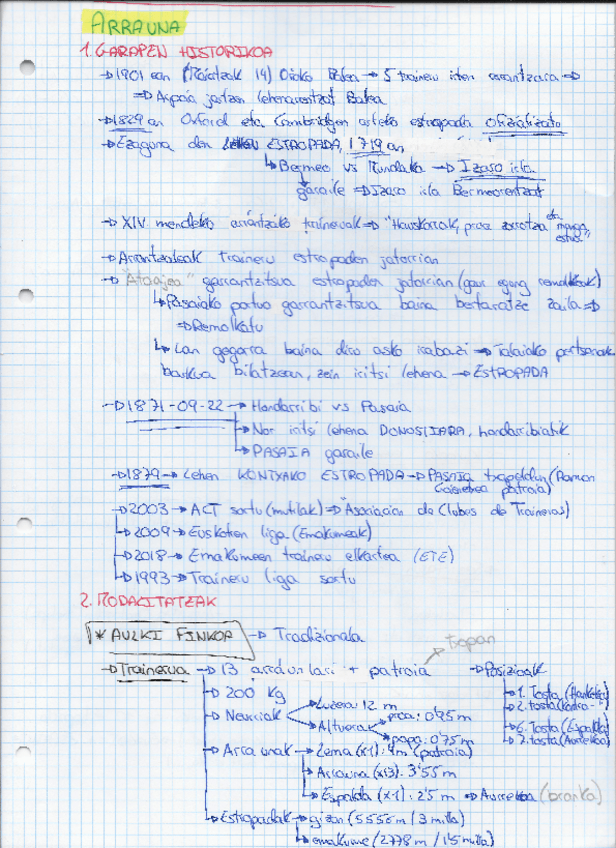 ARRAUNA
1. GARAPEN HISTORIKOA
→ 1901 ean (Maiatzak 14) Orioko Balea → 5 traineru irten arrantzara ⇒
⇒ Arpoia jartzen lehenarentzat Balea
→ 1829 an Oxford eta Cambridgen arteko estropada ofizializatu
→ Ezaguna den lehen ESTROPADA, 1719 an
↳ Bermeo vs Mundaka → Izaro isla
garaile ⇒ Izaro isla Bermeorentzat
→ XIV mendeko arrantzako traineruak ⇒ "Hauskorrak, proa zorrotza eta manga estua"
→ Arrantzaleak traineru estropaden jatorrian
→ "Atoajea" garrantzitsua estropaden jatorrian (gaur egun remolkeak)
↳ Pasaiako portua garrantzitsua baina bertaratze zaila ⇒
⇒ Remolkatu
↳ Lan gogorra baina diru asko irabazi ⇒ Talaiako pertsonak
barkua bilatzean, zein iritsi lehena → ESTROPADA
→ 1871-09-22 → Hondarribi vs Pasaia
→ Nor iritsi lehena DONOSTIARA, hondarribiatik
→ PASAIA garaile
→ 1879 → Lehen KONTXAKO ESTROPADA → PASAIA txapeldun (Ramon
patroia)
→ 2003 → ACT sortu (mutilak) ⇒ Asociacion de Clubes de Traineras)
→ 2009 → Euskotren liga (Emakumeak)
→ 2018 → Emakumeen traineru elkartea (ETE)
→ 1993 → Traineru liga sortu
2. MODALITATEAK
* AULKI FINKOA → Tradizionala
→ Trainerua → 13 arraunlari + patroia → txopan
→ 200 Kg
→ Neurriak Luzera: 12 m
Altuera proa: 0'95 m
popa: 0'75 m
→ Arraunak → Lema (x1): 4m (patroia)
→ Arrauna (x13): 3'55 m
→ Espalda (x1): 2'5 m ⇒ Aurrekoa (branka)
→ Estropadak → gizon (5556 m / 3 milla)
→ emakume (2778 m / 1'5 milla)
→ Posizioak
→ 1. Tosta (Hankeko)
→ 2. tosta (kontra-)
→ 6. Tosta (Espalda)
→ 7. tosta (Aurrekoa)